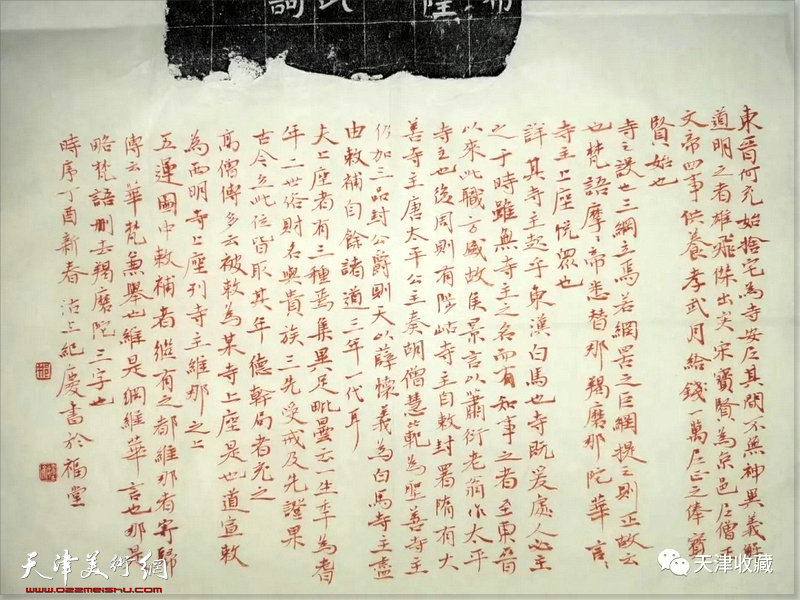 東晉何充始捨宅為寺安尼其間不無神異義解
道明之者雄飛傑出矣宋寶賢為京邑尼僧正
文帝四事供養孝武月給錢一萬尼正之俸寶
賢始也
寺之設也三綱立焉若網罟之巨網提之則正故云
也梵語摩〻帝悉替那羯磨那陀華言〻
寺主上座悅眾也
詳其寺主起乎東漢白馬也寺既爰處人必主
之于時雖無寺主之名而有知事之者至東晉
以來此職方盛故侯景言以蕭衍老翁作太平
寺主也後周則有陟岵寺主自敕封署隋有大
善寺主唐太平公主奏胡僧慧範為聖善寺主
仍加三品封公爵則天以薛懷義為白馬寺主盡
由敕補自餘諸道三年一代耳
夫上座者有三種焉集異足毗曇云一生年為耆
年二世俗財名與貴族三先受戒及先證果
古今立此位皆取其年德幹局者充之
高僧傳多云被敕為某寺上座是也道宣敕
為西明寺上座列寺主維那之上
五運圖中敕補者繼有之都維那者寄歸
傳云華梵兼舉也維是綱維華言也那是
略梵語刪去羯磨陀三字也
時序丁酉新春沽上紀慶書於福堂
天津美术網
www.022meishu.com
天津收藏